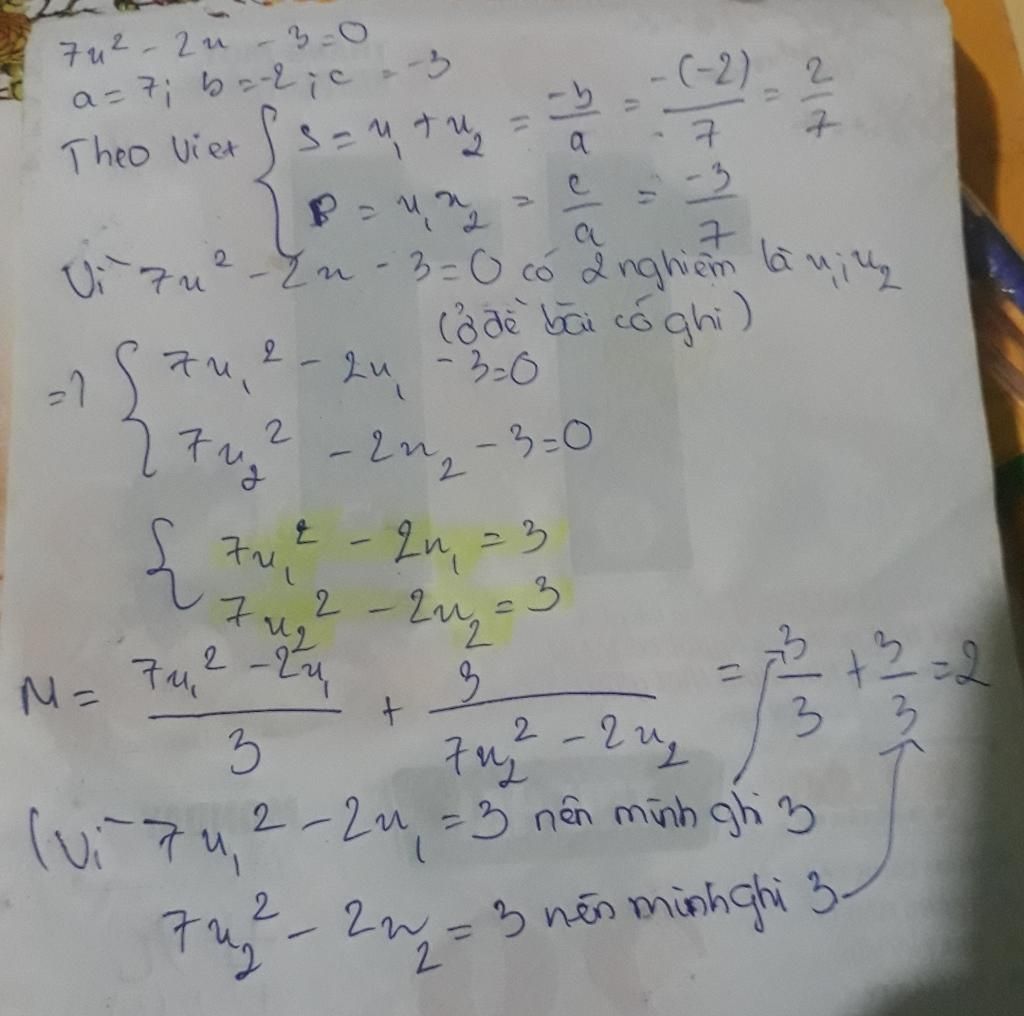 7x² - 2x - 3 = 0
a = 7; b = -2; c = -3
Theo Viet { S = x₁ + x₂ = -b/a = -(-2)/7 = 2/7
P = x₁x₂ = c/a = -3/7
Vì 7x² - 2x - 3 = 0 có 2 nghiệm là x₁; x₂
(ở đề bài có ghi)
=> { 7x₁² - 2x₁ - 3 = 0
7x₂² - 2x₂ - 3 = 0
{ 7x₁² - 2x₁ = 3
7x₂² - 2x₂ = 3
M = (7x₁² - 2x₁)/3 + 3/(7x₂² - 2x₂) = 3/3 + 3/3 = 2
(Vì 7x₁² - 2x₁ = 3 nên mình ghi 3
7x₂² - 2x₂ = 3 nên mình ghi 3